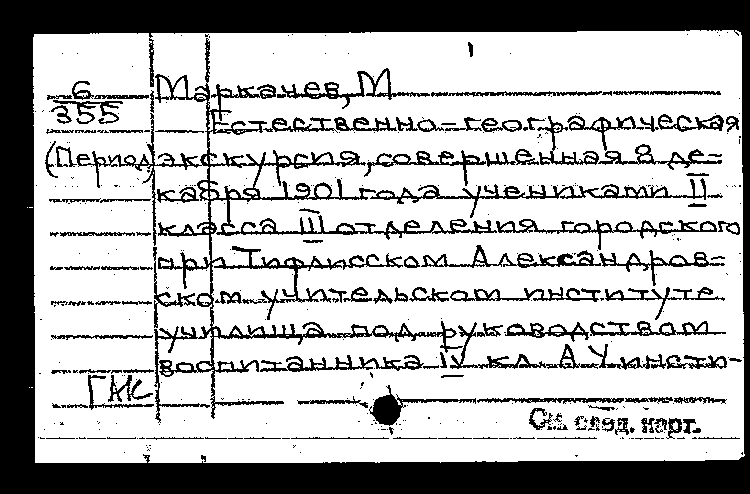 6
355
(Период)
Маркачев, М
Естественно-географическая
экскурсия, совершенная 8 де-
кабря 1901 года учениками II
класса III отделения городского
при Тифлисском Александров-
ском учительском институте
училища под руководством
воспитанника IV кл. А У инсти-
ГАК
См. след. карт.